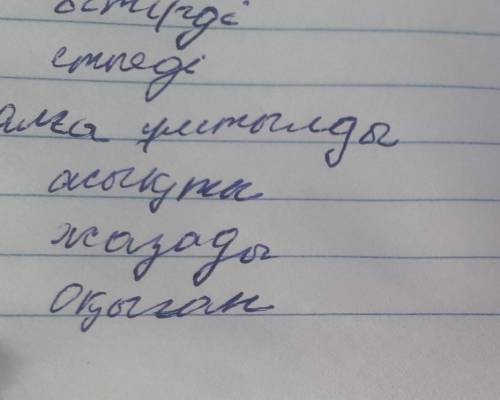 етпеді
алға ұмтылды
асықты
жазады
оқыған